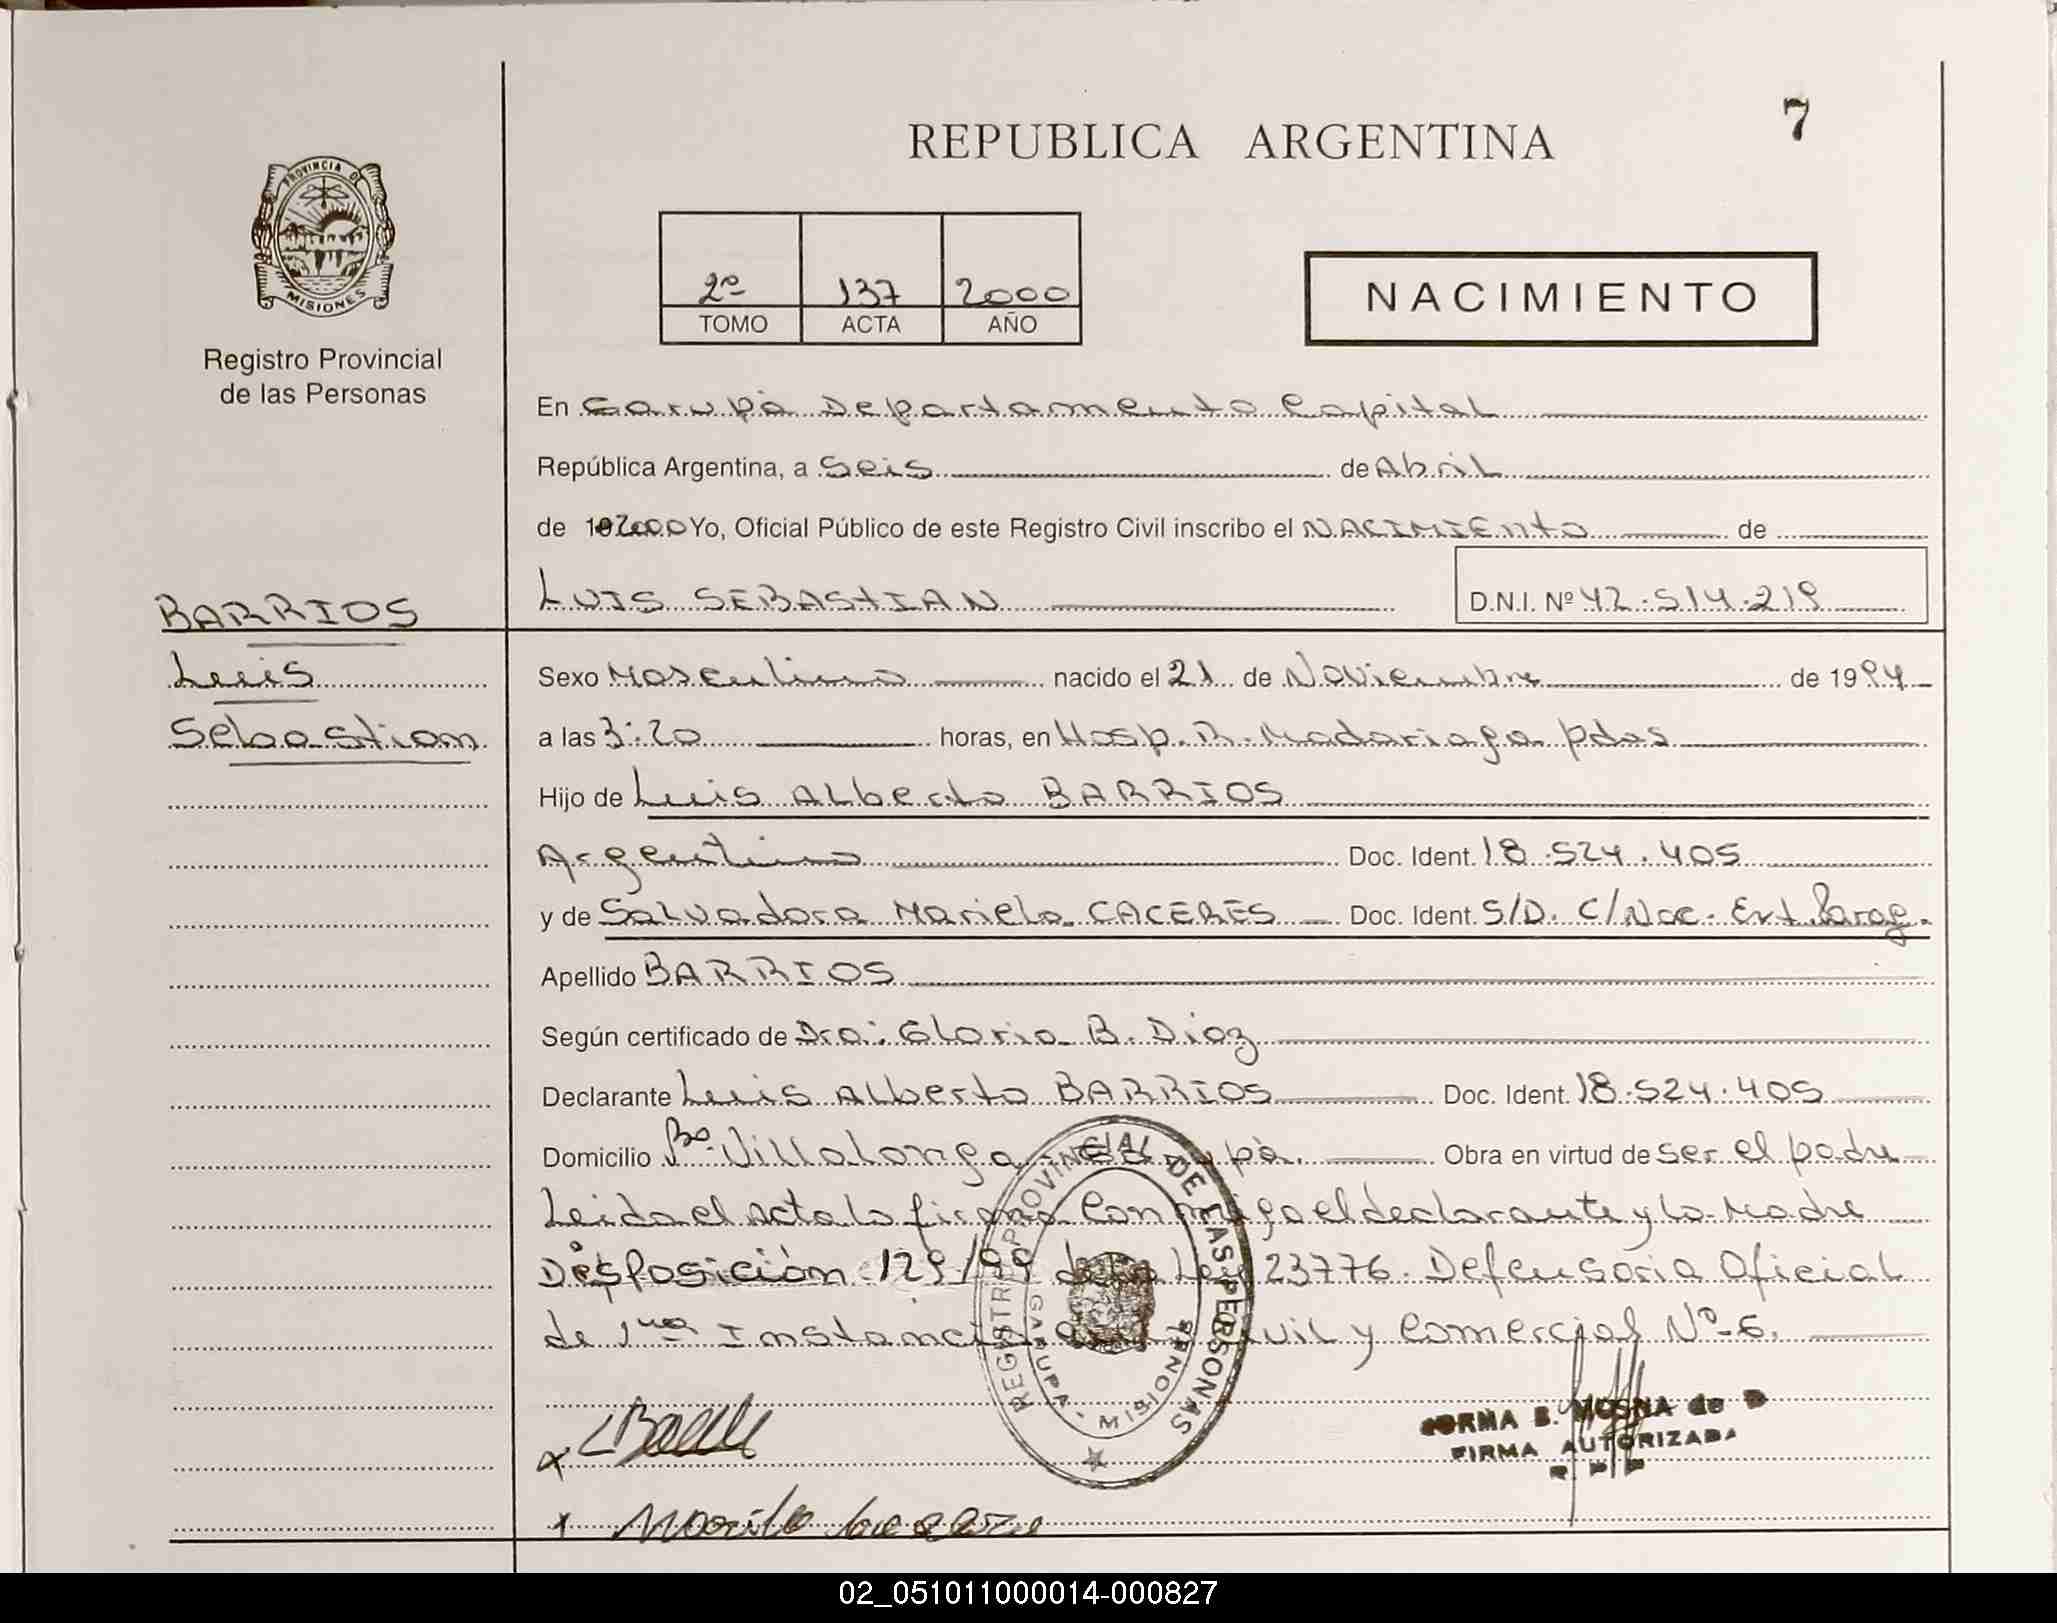 7
REPUBLICA ARGENTINA
PROVINCIA DE
MISIONES
Registro Provincial
de las Personas
2º 137 2000
TOMO ACTA AÑO
NACIMIENTO
En Garupà Departamento Capital
República Argentina, a Seis de Abril
de 19 2000 Yo, Oficial Público de este Registro Civil inscribo el NACIMIENto de
BARRIOS
LUIS SEBAStIAN D.N.I. Nº 42.514.219
Luis
Sexo Masculino nacido el 21 de Noviembre de 1994
Sebastian
a las 3:20 horas, en Hosp. R. Madariaga pdas
Hijo de Luis Alberto BARRIOS
Argentino Doc. Ident. 18.524.405
y de Salvadora Mariela CACERES Doc. Ident. S/D. C/Nac. Ext. Parag.
Apellido BARRIOS
Según certificado de Dra: Gloria B. Diaz
Declarante Luis Alberto BARRIOS Doc. Ident. 18.524.405
Domicilio Bº Villalonga Garupà. Obra en virtud de ser el padre
Leida el acta la firma Conmigo el declarante y la Madre
Disposición 129/99 de la Ley 23776. Defensoria Oficial
de 1era Instancia Civil y Comercial Nº 6.
REGISTRO PROVINCIAL DE LAS PERSONAS
GARUPA - MISIONES
NORMA B. MOSNA de
FIRMA AUTORIZADA
R P P
x
x Mariela
02_051011000014-000827